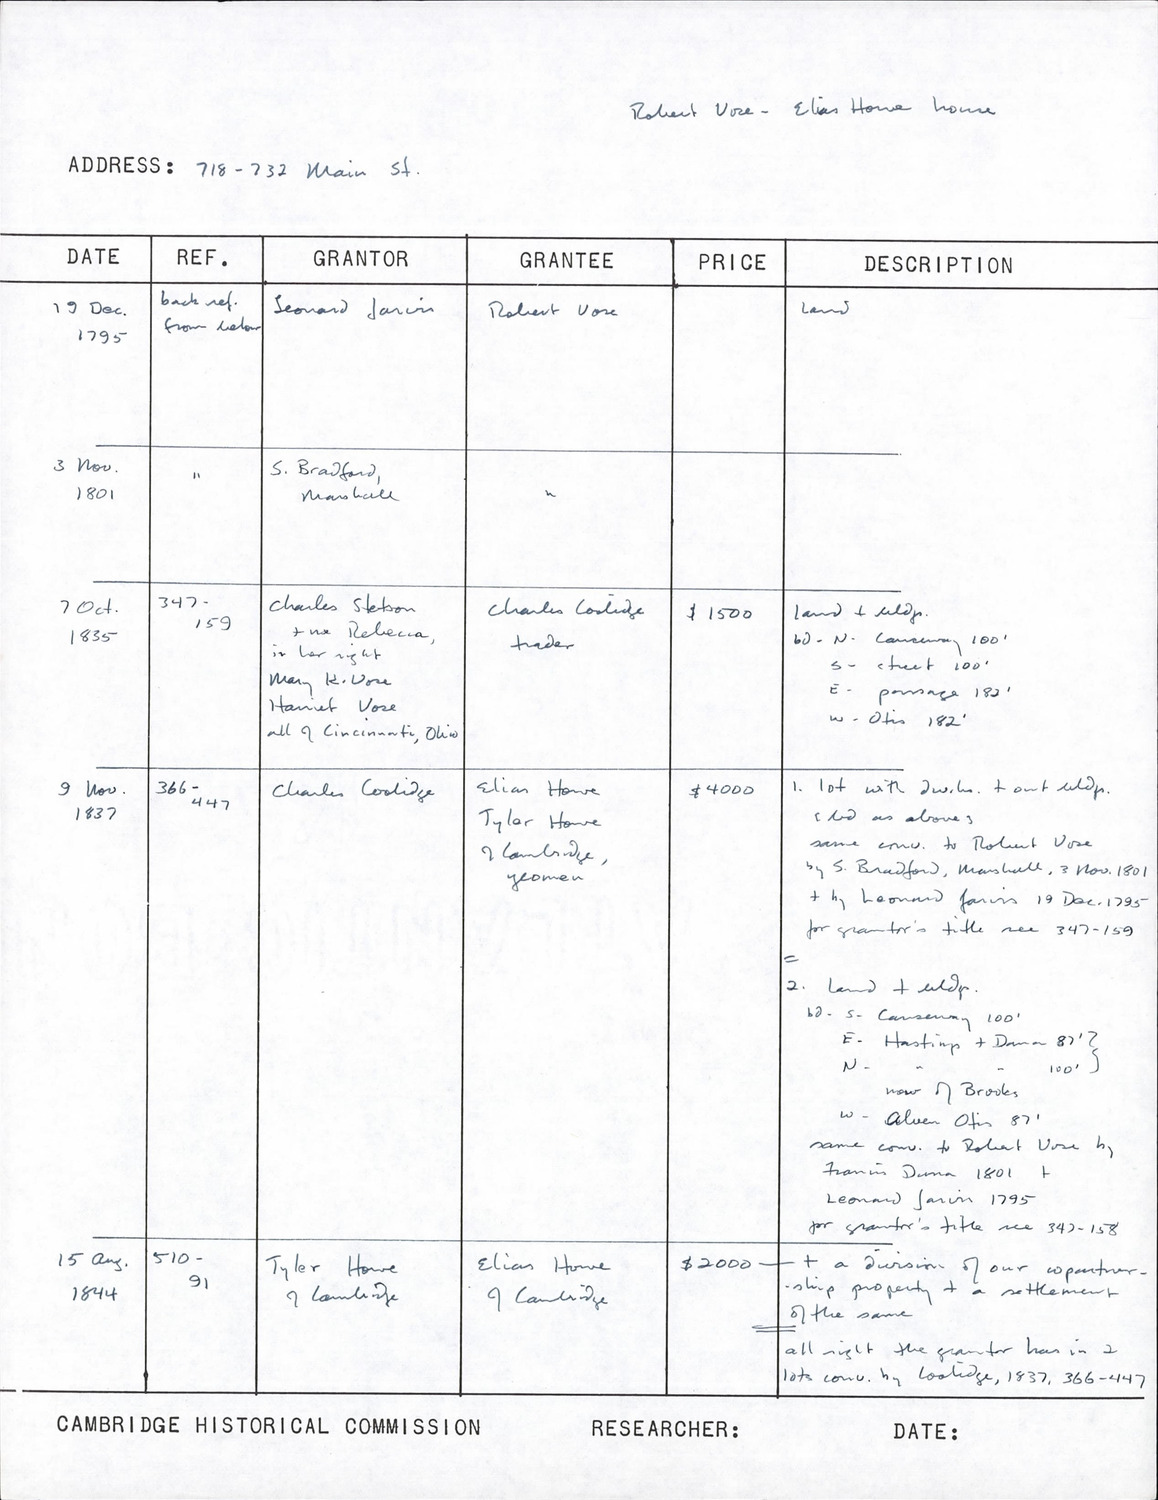 Robert Vose - Elias Howe house
ADDRESS: 718-732 Main St.
DATE REF. GRANTOR GRANTEE PRICE DESCRIPTION
19 Dec. 1795
back ref. from below
Leonard Jarvis
Robert Vose
land
3 Nov. 1801
"
S. Bradford,
Marshall
"
7 Oct. 1835
347-
159
Charles Stetson
+ ux Rebecca,
in her right
Mary K. Vose
Harriet Vose
all of Cincinnati, Ohio
Charles Coolidge
trader
$ 1500
land + bldgs.
bd - N - Causeway 100'
S - street 100'
E - passage 182'
W - Otis 182'
9 Nov. 1837
366-
447
Charles Coolidge
Elias Howe
Tyler Howe
of Cambridge,
yeomen
$4000
1. lot with dwh. + out bldgs.
[bd as above]
same conv. to Robert Vose
by S. Bradford, Marshall, 3 Nov. 1801
+ by Leonard Jarvis 19 Dec. 1795
for grantor's title see 347-159
=
2. land + bldgs.
bd - S - Causeway 100'
E - Hastings + Dana 87' }
N - " " 100' }
now of Brooks
W - Alven Otis 87'
same conv. to Robert Vose by
Francis Dana 1801 +
Leonard Jarvis 1795
for grantor's title see 347-158
15 Aug. 1844
510-
91
Tyler Howe
of Cambridge
Elias Howe
of Cambridge
$2000 — + a division of our copartner-
-ship property + a settlement
of the same
all right the grantor has in 2
lots conv. by Coolidge, 1837, 366-447
CAMBRIDGE HISTORICAL COMMISSION RESEARCHER: DATE: